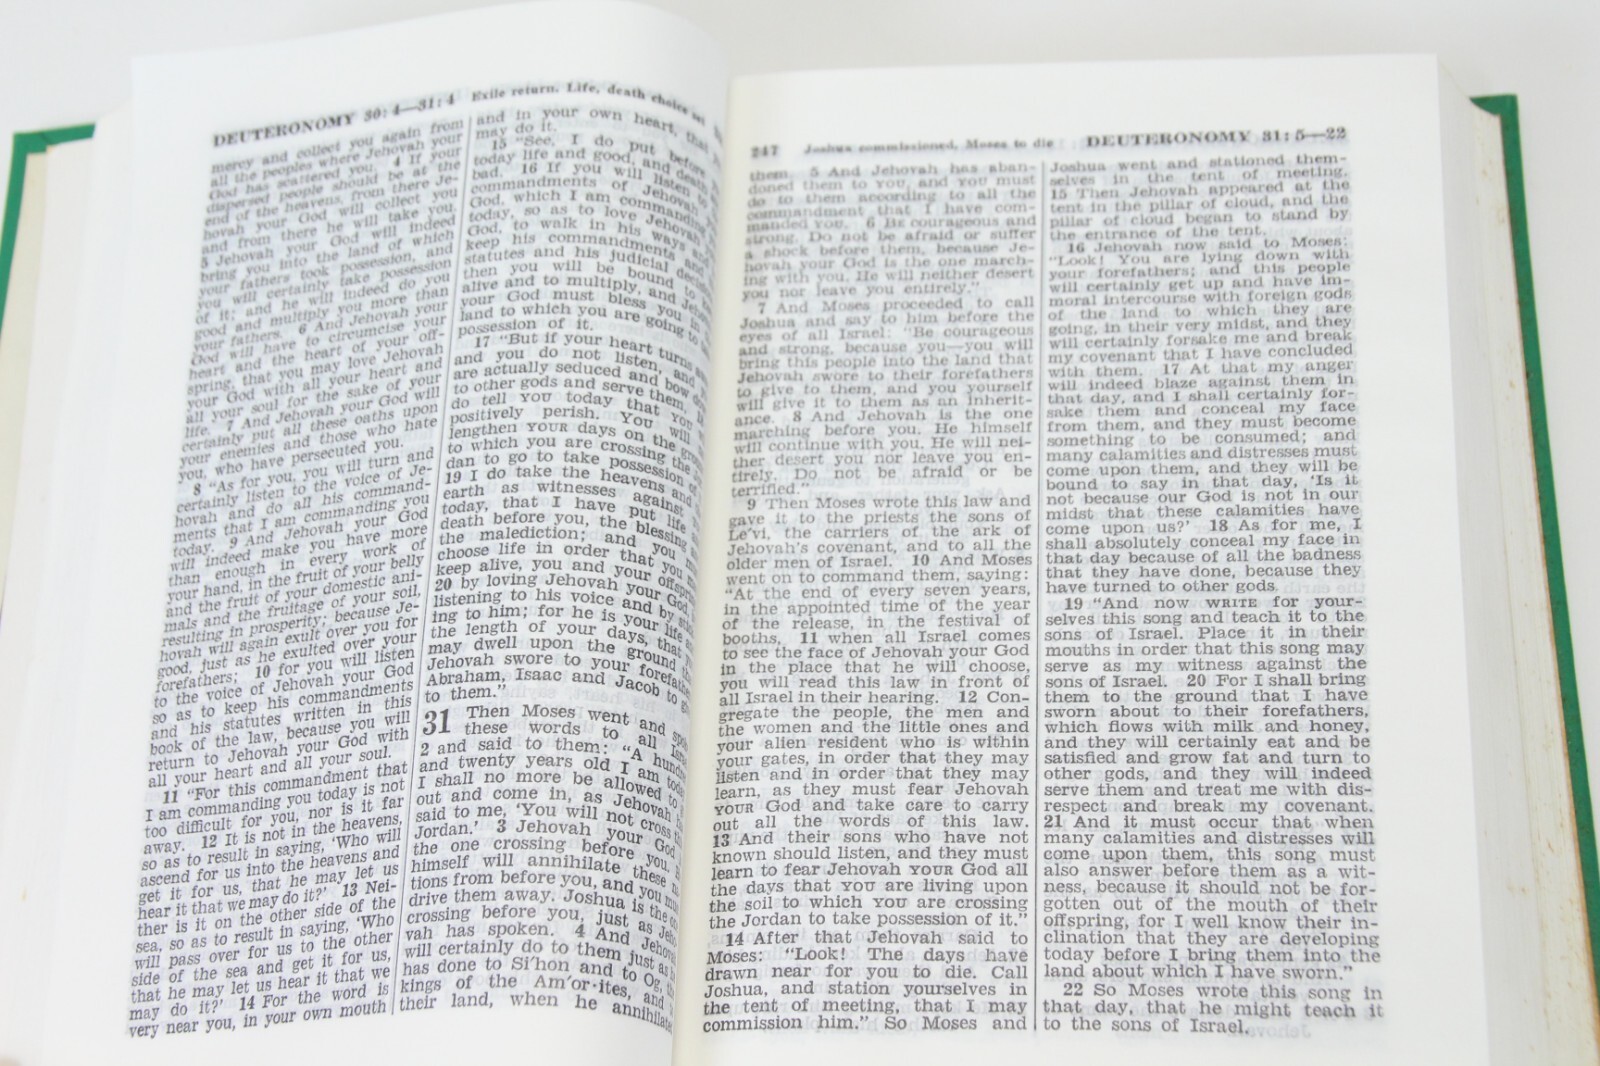 DEUTERONOMY 30:4—31:4 Exile return. Life, death choice set
mercy and collect you again from
all the peoples where Jehovah your
God has scattered you. 4 If your
dispersed people should be at the
end of the heavens, from there Je-
hovah your God will collect you
and from there he will take you.
5 Jehovah your God will indeed
bring you into the land of which
your fathers took possession, and
you will certainly take possession
of it; and he will indeed do you
good and multiply you more than
your fathers. 6 And Jehovah your
God will have to circumcise your
heart and the heart of your off-
spring, that you may love Jehovah
your God with all your heart and
all your soul for the sake of your
life. 7 And Jehovah your God will
certainly put all these oaths upon
your enemies and those who hate
you, who have persecuted you.
8 "As for you, you will turn and
certainly listen to the voice of Je-
hovah and do all his command-
ments that I am commanding you
today. 9 And Jehovah your God
will indeed make you have more
than enough in every work of
your hand, in the fruit of your belly
and the fruit of your domestic ani-
mals and the fruitage of your soil,
resulting in prosperity; because Je-
hovah will again exult over you for
good, just as he exulted over your
forefathers; 10 for you will listen
to the voice of Jehovah your God
so as to keep his commandments
and his statutes written in this
book of the law, because you will
return to Jehovah your God with
all your heart and all your soul.
11 "For this commandment that
I am commanding you today is not
too difficult for you, nor is it far
away. 12 It is not in the heavens,
so as to result in saying, 'Who will
ascend for us into the heavens and
get it for us, that he may let us
hear it that we may do it?' 13 Nei-
ther is it on the other side of the
sea, so as to result in saying, 'Who
will pass over for us to the other
side of the sea and get it for us,
that he may let us hear it that we
may do it?' 14 For the word is
very near you, in your own mouth
and in your own heart, that
may do it.
15 "See, I do put before
today life and good, and death
bad. 16 If you will listen to
commandments of Jehovah
God, which I am commanding
today, so as to love Jehovah
God, to walk in his ways and
keep his commandments and
statutes and his judicial
then you will be bound to
alive and to multiply, and Jehovah
your God must bless you in
land to which you are going to
possession of it.
17 "But if your heart turns
and you do not listen, and
are actually seduced and bow
to other gods and serve them,
do tell YOU today that YOU
positively perish. YOU will
lengthen YOUR days on the
to which you are crossing the
dan to go to take possession
19 I do take the heavens and
earth as witnesses against
today, that I have put life
death before you, the blessing
the malediction; and you
choose life in order that you
keep alive, you and your offspring
20 by loving Jehovah your God,
listening to his voice and by
ing to him; for he is your life
the length of your days, that
may dwell upon the ground
Jehovah swore to your forefathers
Abraham, Isaac and Jacob to
to them."
31 Then Moses went and
these words to all
2 and said to them: "A
and twenty years old I am
I shall no more be allowed to
out and come in, as Jehovah
said to me, 'You will not cross
Jordan.' 3 Jehovah your God
the one crossing before you.
himself will annihilate these
tions from before you, and you
drive them away. Joshua is the
crossing before you, just as
vah has spoken. 4 And
will certainly do to them just as
has done to Si'hon and to Og,
kings of the Am'or·ites, and
their land, when he annihilated
247 Joshua commissioned. Moses to die DEUTERONOMY 31:5—22
them. 5 And Jehovah has aban-
doned them to YOU, and YOU must
do to them according to all the
commandment that I have com-
manded YOU. 6 Be courageous and
strong. Do not be afraid or suffer
a shock before them, because Je-
hovah your God is the one march-
ing with you. He will neither desert
you nor leave you entirely."
7 And Moses proceeded to call
Joshua and say to him before the
eyes of all Israel: "Be courageous
and strong, because you—you will
bring this people into the land that
Jehovah swore to their forefathers
to give to them, and you yourself
will give it to them as an inherit-
ance. 8 And Jehovah is the one
marching before you. He himself
will continue with you. He will nei-
ther desert you nor leave you en-
tirely. Do not be afraid or be
terrified."
9 Then Moses wrote this law and
gave it to the priests the sons of
Le'vi, the carriers of the ark of
Jehovah's covenant, and to all the
older men of Israel. 10 And Moses
went on to command them, saying:
"At the end of every seven years,
in the appointed time of the year
of the release, in the festival of
booths, 11 when all Israel comes
to see the face of Jehovah your God
in the place that he will choose,
you will read this law in front of
all Israel in their hearing. 12 Con-
gregate the people, the men and
the women and the little ones and
your alien resident who is within
your gates, in order that they may
listen and in order that they may
learn, as they must fear Jehovah
YOUR God and take care to carry
out all the words of this law.
13 And their sons who have not
known should listen, and they must
learn to fear Jehovah YOUR God all
the days that YOU are living upon
the soil to which YOU are crossing
the Jordan to take possession of it."
14 After that Jehovah said to
Moses: "Look! The days have
drawn near for you to die. Call
Joshua, and station yourselves in
the tent of meeting, that I may
commission him." So Moses and
Joshua went and stationed them-
selves in the tent of meeting.
15 Then Jehovah appeared at the
tent in the pillar of cloud, and the
pillar of cloud began to stand by
the entrance of the tent.
16 Jehovah now said to Moses:
"Look! You are lying down with
your forefathers; and this people
will certainly get up and have im-
moral intercourse with foreign gods
of the land to which they are
going, in their very midst, and they
will certainly forsake me and break
my covenant that I have concluded
with them. 17 At that my anger
will indeed blaze against them in
that day, and I shall certainly for-
sake them and conceal my face
from them, and they must become
something to be consumed; and
many calamities and distresses must
come upon them, and they will be
bound to say in that day, 'Is it
not because our God is not in our
midst that these calamities have
come upon us?' 18 As for me, I
shall absolutely conceal my face in
that day because of all the badness
that they have done, because they
have turned to other gods.
19 "And now WRITE for your-
selves this song and teach it to the
sons of Israel. Place it in their
mouths in order that this song may
serve as my witness against the
sons of Israel. 20 For I shall bring
them to the ground that I have
sworn about to their forefathers,
which flows with milk and honey,
and they will certainly eat and be
satisfied and grow fat and turn to
other gods, and they will indeed
serve them and treat me with dis-
respect and break my covenant.
21 And it must occur that when
many calamities and distresses will
come upon them, this song must
also answer before them as a wit-
ness, because it should not be for-
gotten out of the mouth of their
offspring, for I well know their in-
clination that they are developing
today before I bring them into the
land about which I have sworn."
22 So Moses wrote this song in
that day, that he might teach it
to the sons of Israel.